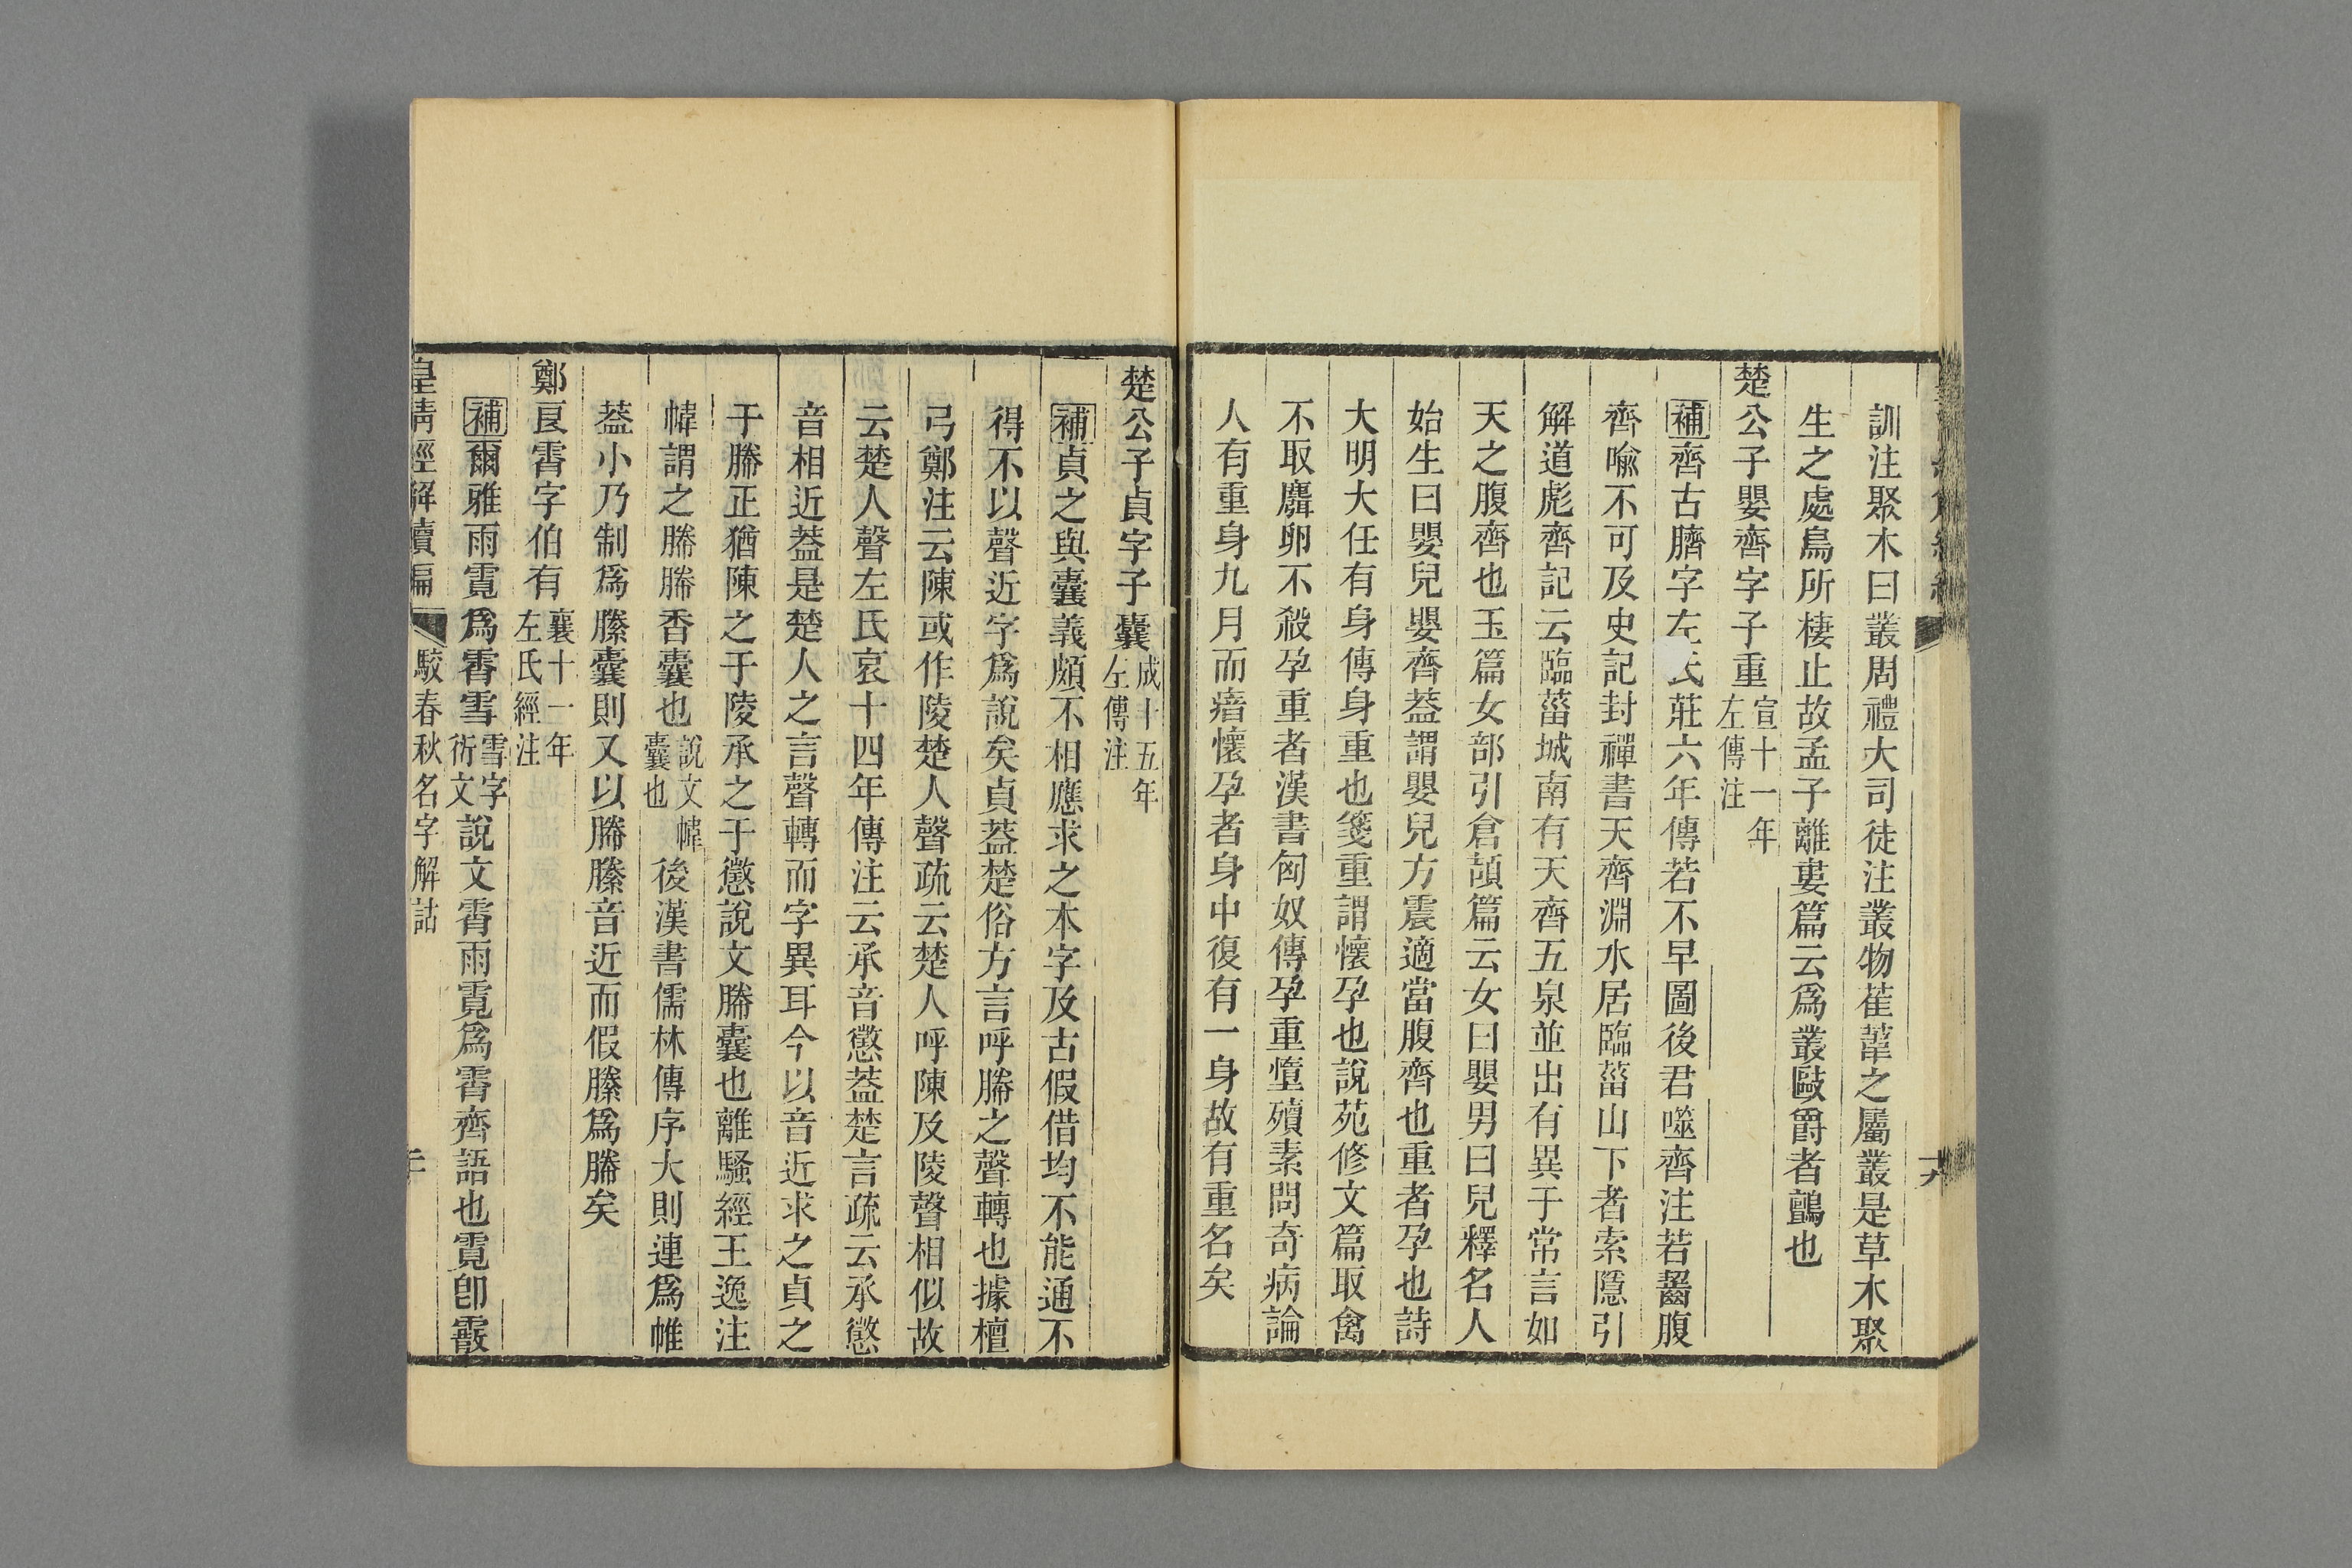 訓注聚木曰叢周禮大司徒注叢物萑葦之屬叢是草木聚
生之處鳥所棲止故孟子離婁篇云爲叢敺爵者鸇也
楚公子嬰齊字子重宣十一年左傳注
補齊古臍字左氏莊六年傳若不早圖後君噬齊注若齧腹
齊喩不可及史記封禪書天齊淵水居臨菑山下者索隱引
解道彪齊記云臨菑城南有天齊五泉並出有異于常言如
天之腹齊也玉篇女部引倉頡篇云女曰嬰男曰兒釋名人
始生曰嬰兒嬰齊葢謂嬰兒方震適當腹齊也重者孕也詩
大明大任有身傳身重也箋重謂懷孕也說苑修文篇取禽
不取麛卵不殺孕重者漢書匈奴傳孕重墯殰素問奇病論
人有重身九月而瘖懷孕者身中復有一身故有重名矣
楚公子貞字子囊成十五年左傳注
補貞之與囊義頗不相應求之本字及古假借均不能通不
得不以聲近字爲說矣貞葢楚俗方言呼幐之聲轉也據檀
弓鄭注云陳或作陵楚人聲疏云楚人呼陳及陵聲相似故
云楚人聲左氏哀十四年傳注云承音懲葢楚言疏云承懲
音相近葢是楚人之言聲轉而字異耳今以音近求之貞之
于幐正猶陳之于陵承之于懲說文幐囊也離騷經王逸注
幃謂之幐幐香囊也說文幃囊也後漢書儒林傳序大則連爲帷
葢小乃制爲縢囊則又以幐縢音近而假縢爲幐矣
鄭良霄字伯有襄十一年左氏經注
補爾雅雨霓爲霄雪雪字衍文說文霄雨霓爲霄齊語也霓卽霰
皇清經解續編 駁春秋名字解詁